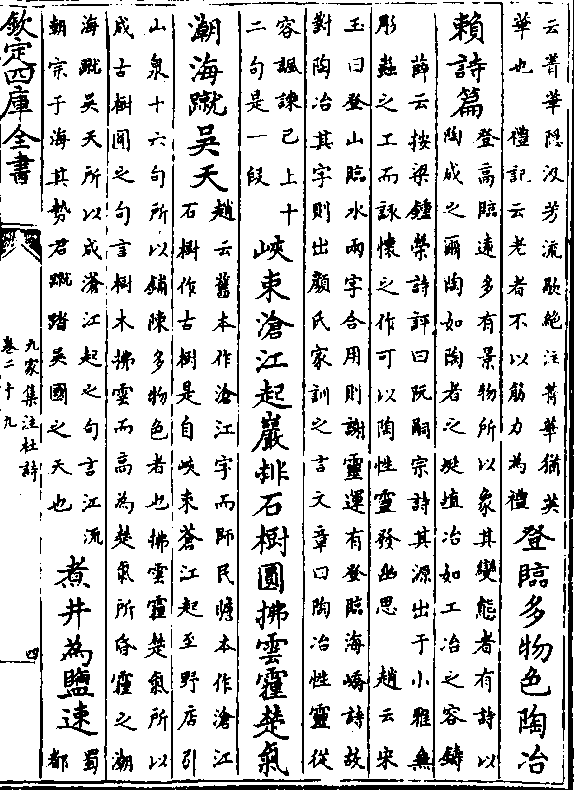 云菁華隱沒芳流歇絕注菁華猶英
華也 禮記云老者不以筋力為禮
登臨多物色陶冶
賴詩篇
登高臨遠多有景物所以象其變態者有詩以
陶成之爾陶如陶者之埏埴冶如工冶之容鑄
薛云按梁鍾榮詩評曰阮嗣宗詩其源出于小雅無
彫蟲之工而詠懷之作可以陶性靈發幽思 趙云宋
玉曰登山臨水兩字合用則謝靈運有登臨海嶠詩故
對陶冶其字則出顔氏家訓之言文章曰陶冶性靈從
容諷諫已上十
二句是一段
峽束滄江起巖排石樹圓拂雲霾楚氣
潮海蹴吳天
趙云舊本作滄江字而師民瞻本作滄江
石樹作古樹是自峽束蒼江起至野店引
山泉十六句所以鋪陳多物色者也拂雲霾楚氣所以
成古樹圓之句言樹木拂雲而高為楚氣所昏霾之潮
海蹴吳天所以成滄江起之句言江流
朝宗于海其勢君蹴踏吳國之天也
煮井為鹽速
蜀
都
欽定四庫全書
九家集注杜詩
卷二十九
四